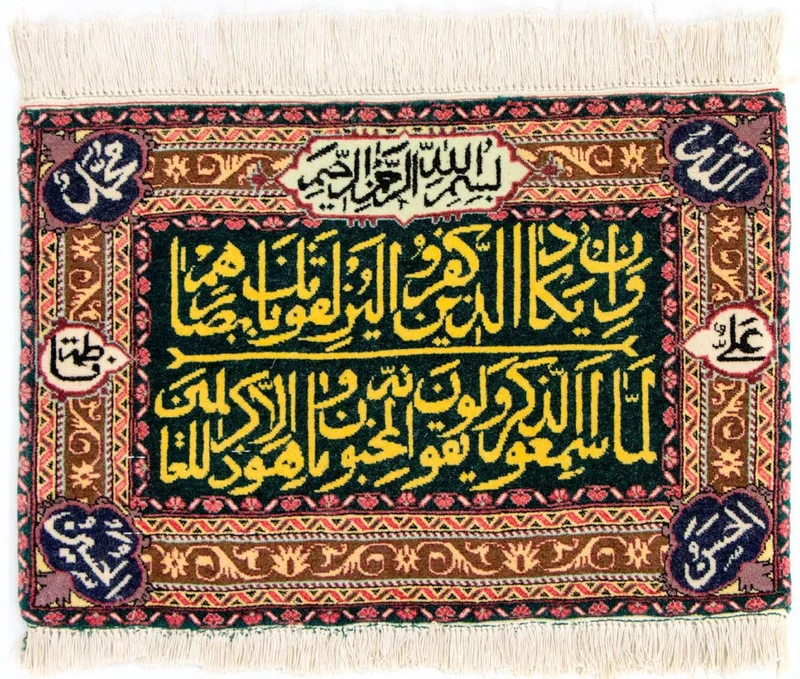 الله
محمد
بسم الله الرحمن الرحيم
وان يكاد الذين كفروا ليزلقونك بابصارهم
علي
فاطمة
لما سمعوا الذكر ويقولون انه لمجنون وما هو الا ذكر للعالمين
الحسن
الحسين